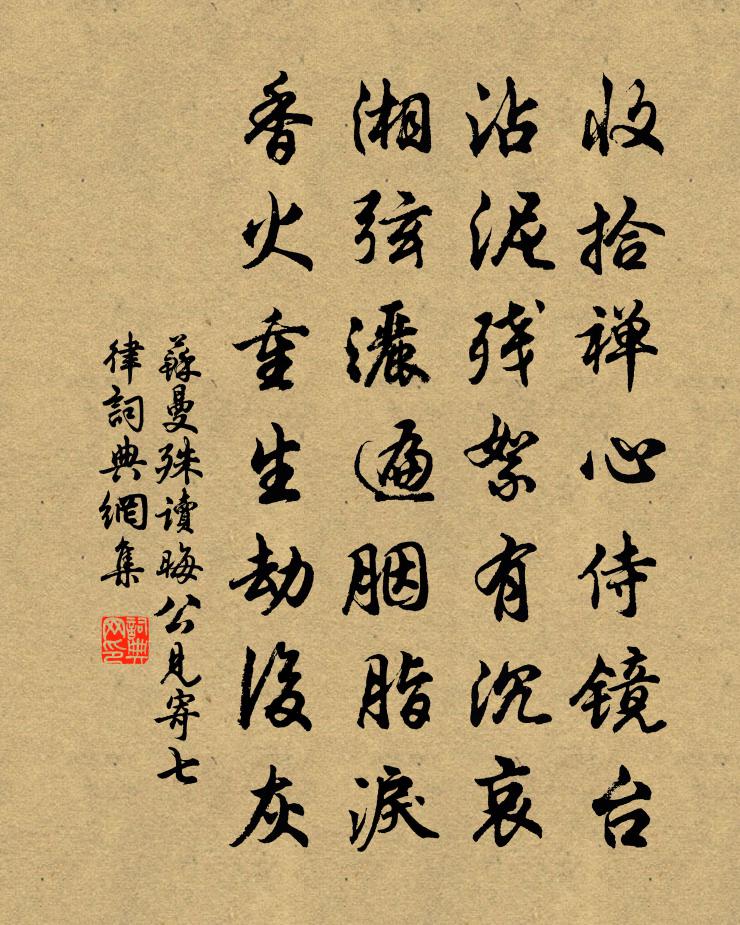 收拾禅心侍镜台
沾泥残絮有沉哀
湘弦灑遍胭脂淚
香火重生劫後灰
蘇曼殊讀晦公見寄七
律詞典網集
詞典
网印